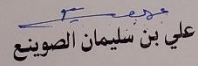 علي بن سليمان الصوينع